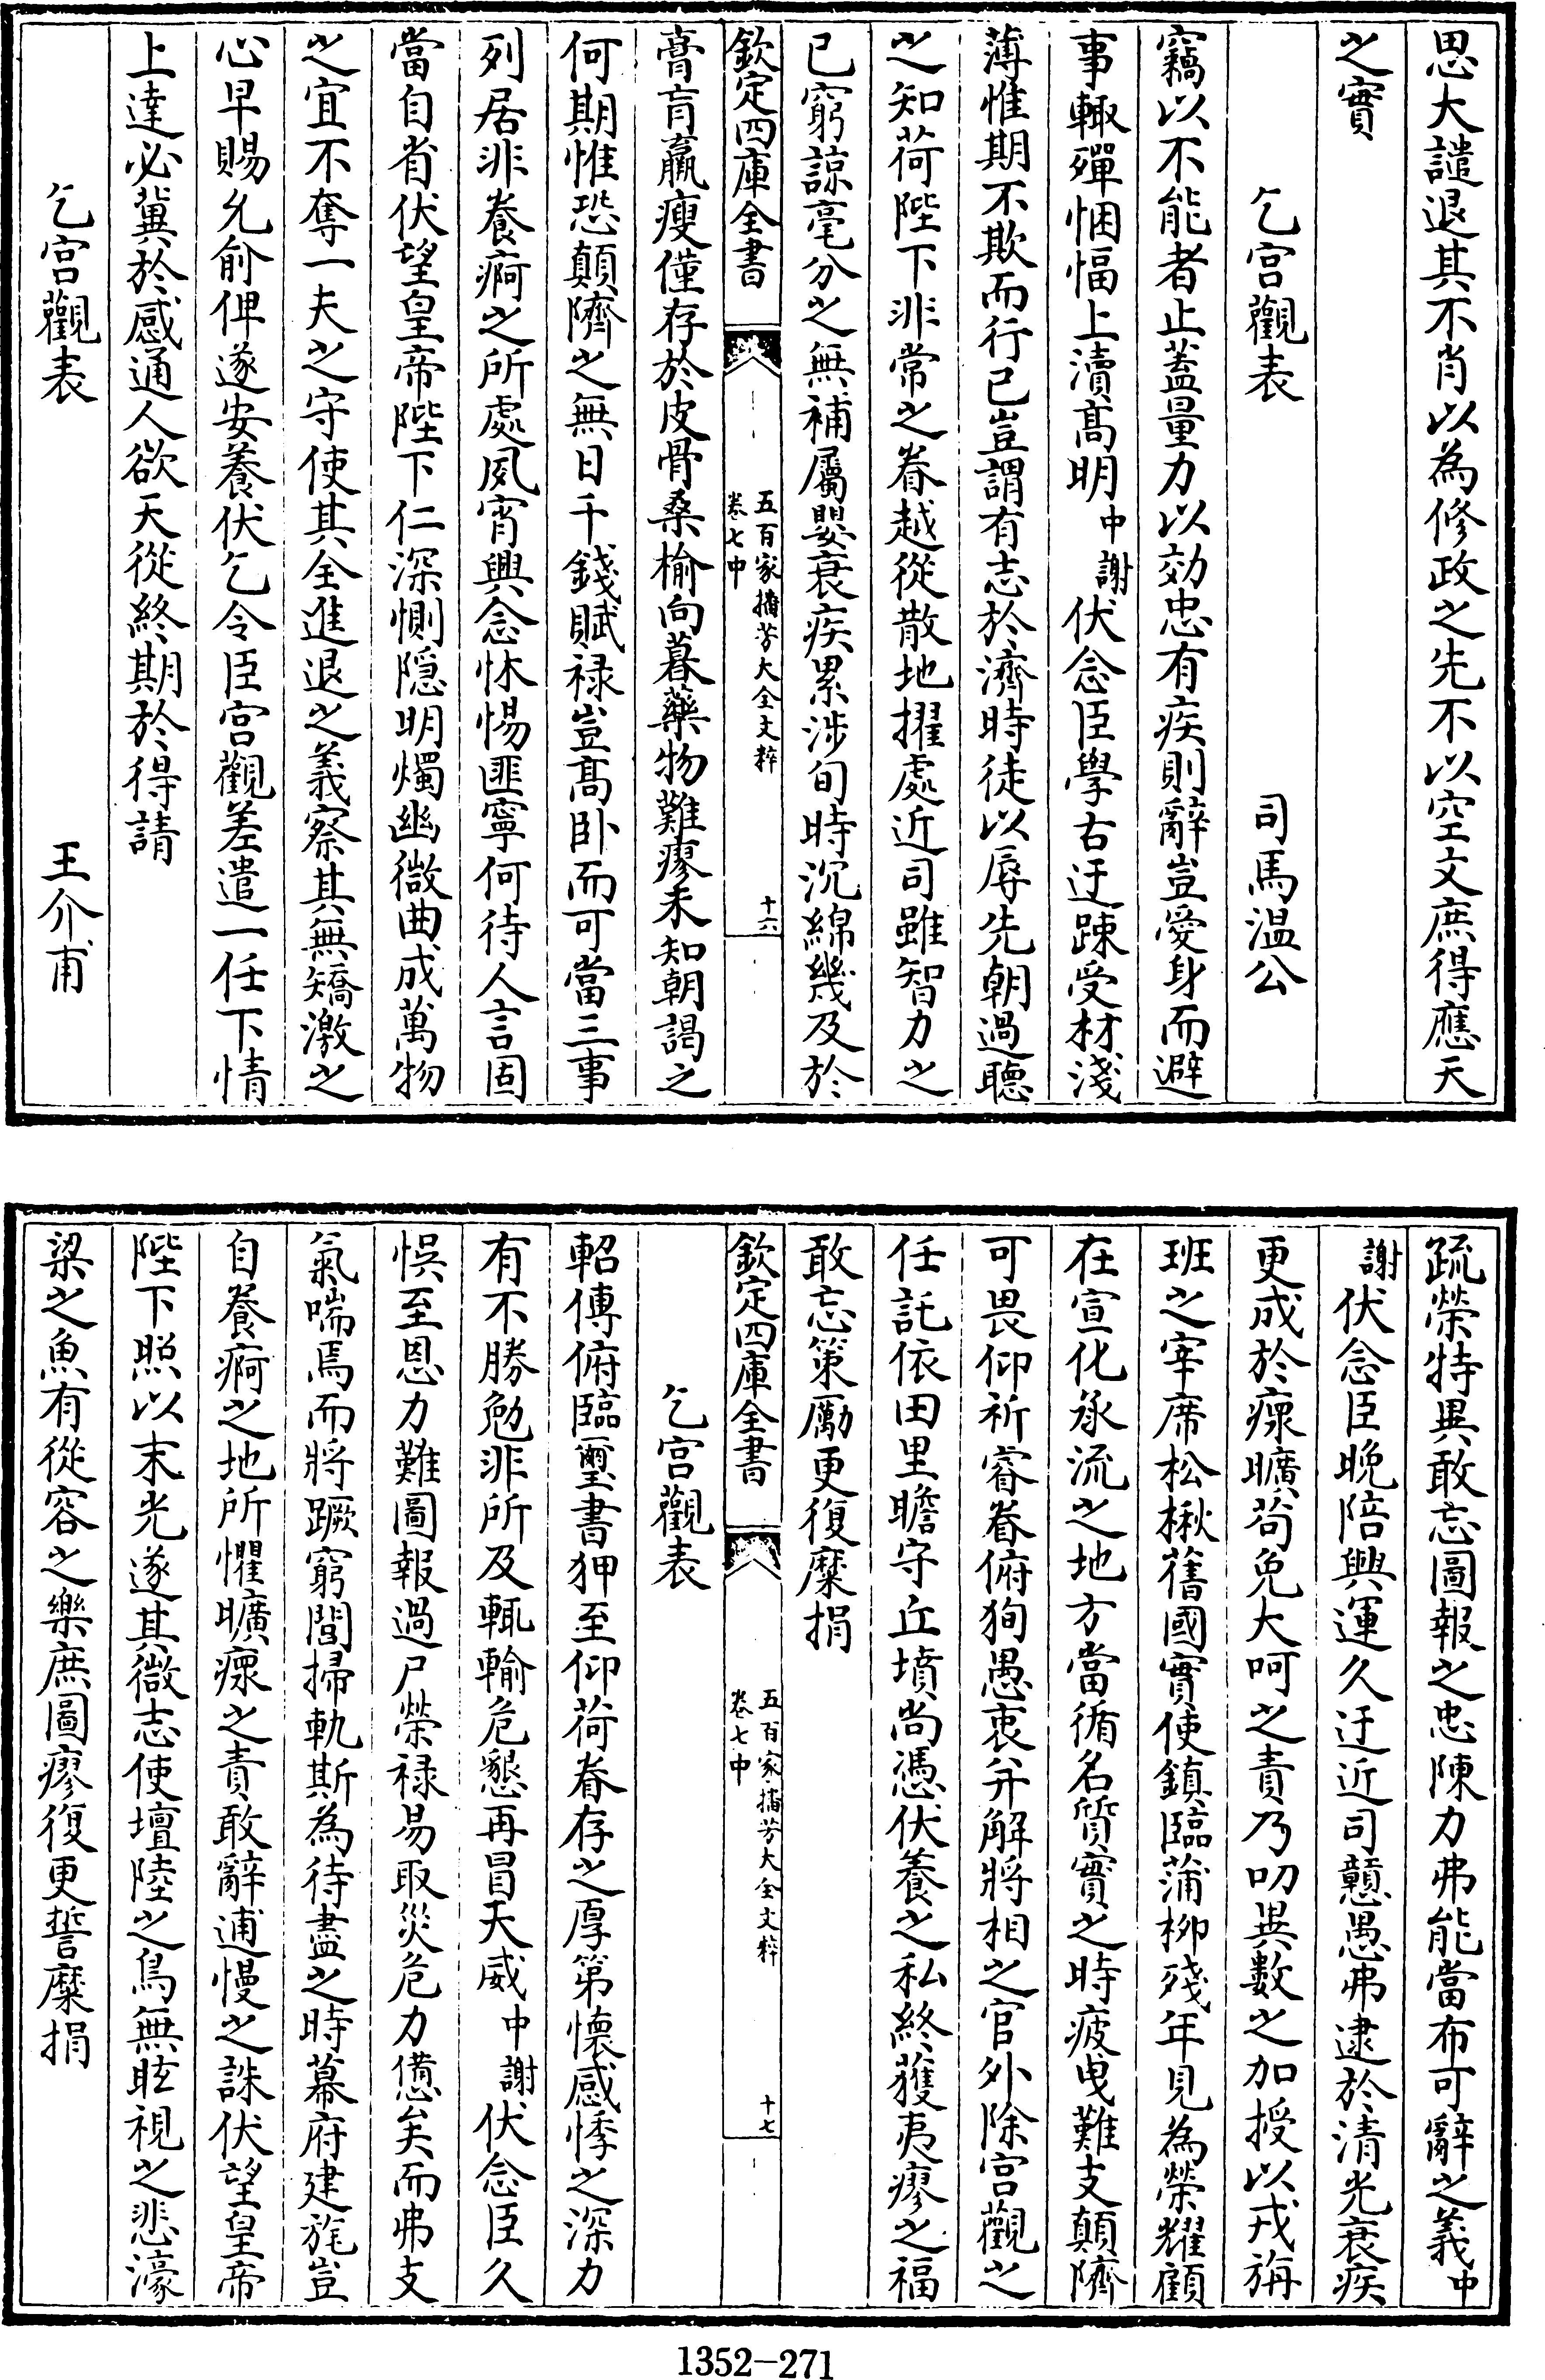 思大譴退其不肖以為修政之先不以空文庶得應天
之實
乞宫觀表 司馬温公
竊以不能者止蓋量力以効忠有疾則辭豈愛身而避
事輙殫悃愊上瀆髙明中謝伏念臣學古迂踈受材淺
薄惟期不欺而行已豈謂有志於濟時徒以辱先朝過聽
之知荷陛下非常之眷越從散地擢處近司雖智力之
已窮諒毫分之無補屬嬰衰疾累涉旬時沉綿幾及於
欽定四庫全書
五百家播芳大全文粹
卷七中
十六
膏肓羸瘦僅存於皮骨桑榆向暮藥物難瘳未知朝謁之
何期惟恐顛隮之無日千錢賦禄豈髙卧而可當三事
列居非養痾之所處夙宵興念怵惕匪寧何待人言固
當自省伏望皇帝陛下仁深惻隠明燭幽微曲成萬物
之宜不奪一夫之守使其全進退之義察其無矯激之
心早賜允俞俾遂安養伏乞令臣宫觀差遣一任下情
上達必冀於感通人欲天從終期於得請
乞宫觀表 王介甫
疏榮特異敢忘圖報之忠陳力弗能當布可辭之義中
謝伏念臣晚陪興運久迂近司戇愚弗逮於清光衰疾
更成於瘝曠苟免大呵之責乃叨異數之加授以戎旃
班之宰席松楸舊國實使鎮臨蒲柳殘年見為榮耀顧
在宣化承流之地方當循名質實之時疲曵難支顛隮
可畏仰祈睿眷俯狥愚衷并解將相之官外除宫觀之
任託依田里瞻守丘墳尚憑伏養之私終獲夷瘳之福
敢忘策厲更復糜捐
欽定四庫全書
五百家播芳大全文粹
卷七中
十七
乞宫觀表
軺傳俯臨璽書狎至仰荷眷存之厚第懷感悸之深力
有不勝勉非所及輒輸危懇再冒天威中謝伏念臣久
悞至恩力難圖報過尸榮禄易取災危力憊矣而弗支
氣喘焉而將蹶窮閻掃軌斯為待盡之時幕府建旄豈
自養痾之地所懼曠瘝之責敢辭逋慢之誅伏望皇帝
陛下照以末光遂其微志使壇陸之鳥無眩視之悲濠
梁之魚有從容之樂庶圖瘳復更誓糜捐
1352-271